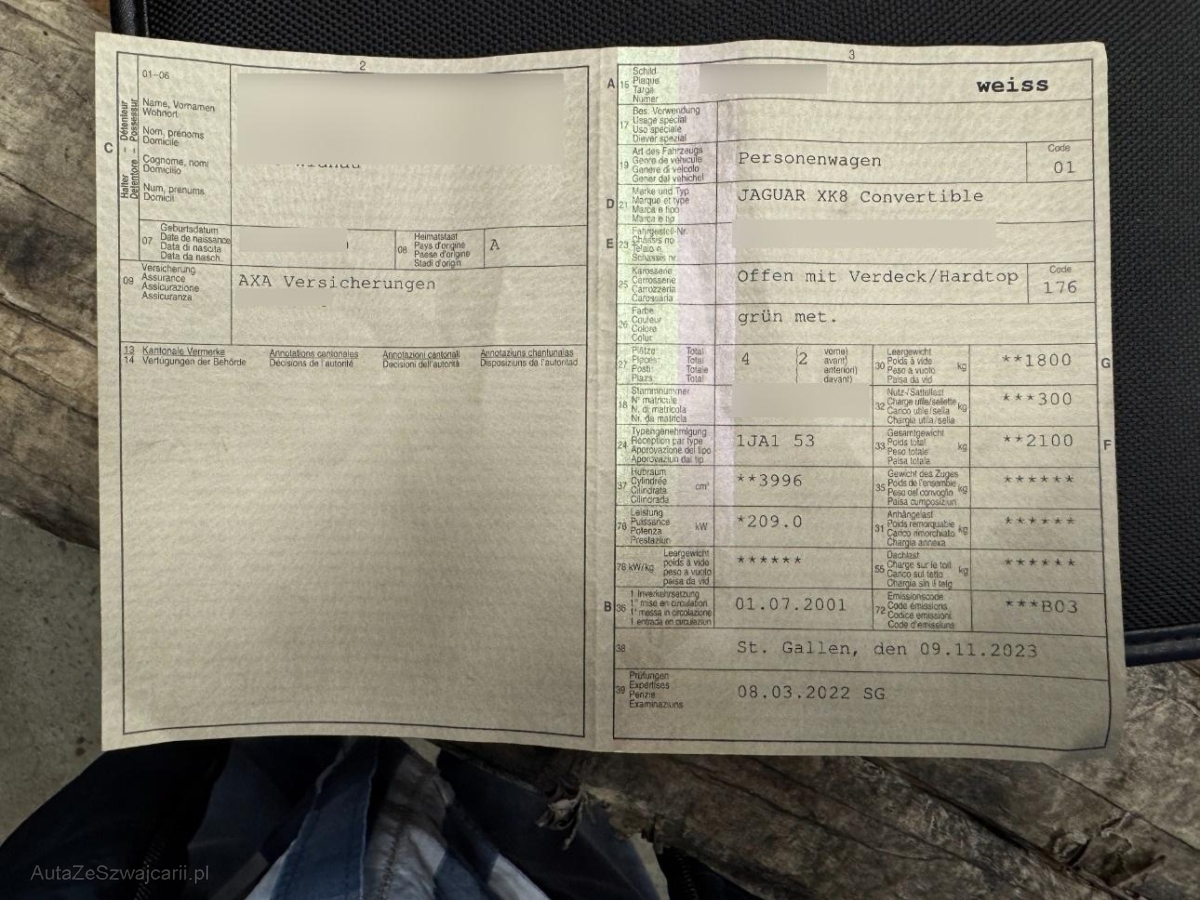 2
01-06
Halter - Détenteur
Detentore - Possessur
C
Name, Vornamen
Wohnort
Nom, prénoms
Domicile
Cognome, nomi
Domicilio
Num, prenums
Domicil
07
Geburtsdatum
Date de naissance
Data di nascita
Data da nasch.
08
Heimatstaat
Pays d'origine
Paese d'origine
Stadi d'origin
A
09
Versicherung
Assurance
Assicurazione
Assicuranza
AXA Versicherungen
13
14
Kantonale Vermerke
Verfügungen der Behörde
Annotations cantonales
Décisions de l'autorité
Annotazioni cantonali
Decisioni dell'autorità
Annotaziuns chantunalas
Disposiziuns da l'autoritad
3
A
15
Schild
Plaque
Targa
Numer
weiss
17
Bes. Verwendung
Usage spécial
Uso speciale
Diever spezial
19
Art des Fahrzeugs
Genre de véhicule
Genere di veicolo
Gener dal vehichel
Personenwagen
Code
01
D
21
Marke und Typ
Marque et type
Marca e tipo
Marca e tip
JAGUAR XK8 Convertible
E
23
Fahrgestell-Nr.
Châssis no
Telaio n.
Schassis nr.
25
Karosserie
Carrosserie
Carrozzeria
Carossaria
Offen mit Verdeck/Hardtop
Code
176
26
Farbe
Couleur
Colore
Colur
grün met.
27
Plätze: Total
Places: Total
Posti: Totale
Plazs: Total
4
(2
vorne)
avant)
anteriori)
davant)
30
Leergewicht
Poids à vide
Peso a vuoto
Paisa da vid
kg
**1800
G
18
Stammnummer
N° matricule
N. di matricola
Nr. da matricla
32
Nutz-/Sattellast
Charge utile/sellette
Carico utile/sella
Chargia utila/sella
kg
***300
24
Typengenehmigung
Réception par type
Approvazione del tipo
Approvaziun dal tip
1JA1 53
33
Gesamtgewicht
Poids total
Peso totale
Paisa totala
kg
**2100
F
37
Hubraum
Cylindrée
Cilindrata
Cilindrada
cm³
**3996
35
Gewicht des Zuges
Poids de l'ensemble
Peso del convoglio
Paisa cumposiziun
kg
******
76
Leistung
Puissance
Potenza
Prestaziun
kW
*209.0
31
Anhängelast
Poids remorquable
Carico rimorchiato
Chargia annexa
kg
******
78 kW/kg
Leergewicht
poids à vide
peso a vuoto
paisa da vid
******
55
Dachlast
Charge sur le toit
Carico sul tetto
Chargia sin il tetg
kg
******
B
36
1. Inverkehrsetzung
1re mise en circulation
1a messa in circolazione
1. entrada en circulaziun
01.07.2001
72
Emissionscode
Code émissions
Codice emissioni
Code d'emissiuns
***B03
38
St. Gallen, den 09.11.2023
39
Prüfungen
Expertises
Perizie
Examinaziuns
08.03.2022 SG
AutaZeSzwajcarii.pl